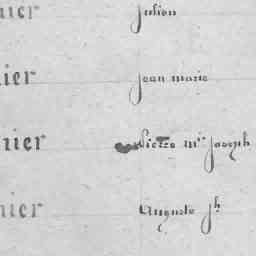 nier Julien
nier jean marie
nier Pierre Mie joseph
nier Auguste jh